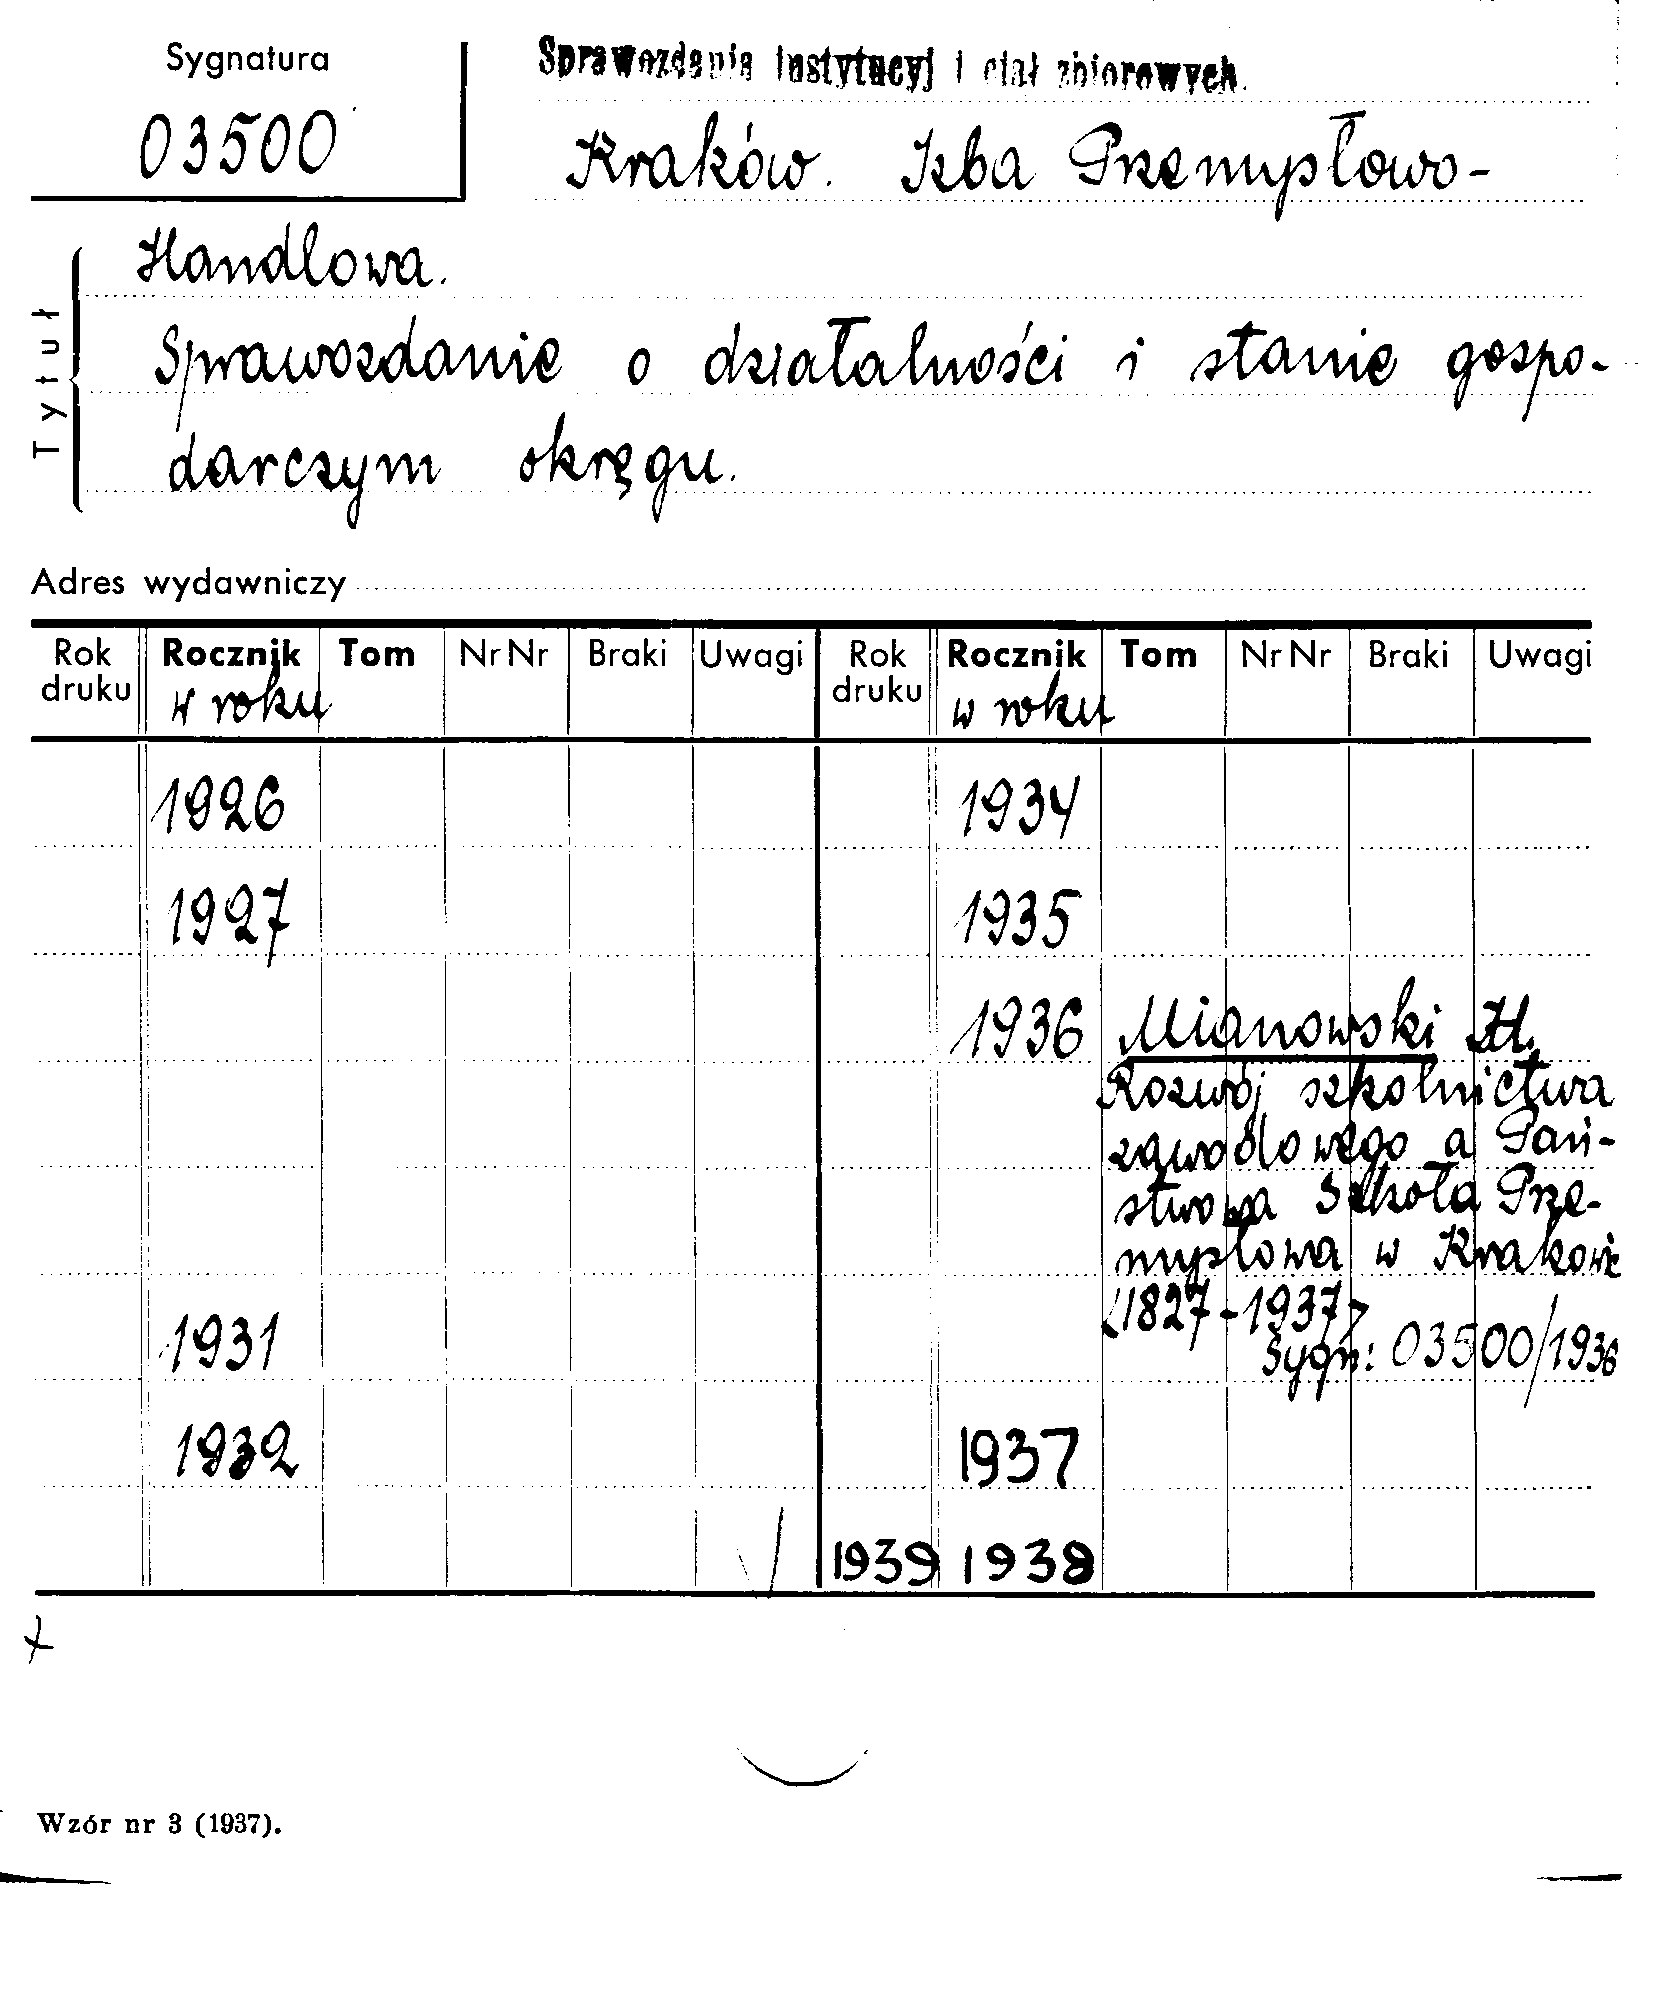 Sygnatura
03500
Sprawozdania instytucyj i ciał zbiorowych.
Kraków. Izba Przemysłowo-
Handlowa.
Tytuł
Sprawozdanie o działalności i stanie gospo-
darczym okręgu.
Adres wydawniczy
Rok druku Rocznik Tom Nr Nr Braki Uwagi Rok druku Rocznik Tom Nr Nr Braki Uwagi
w roku w roku
1926 1934
1927 1935
1936 Mianowski H.
Rozwój szkolnictwa
zawodowego a Pań-
stwowa Szkoła Prze-
mysłowa w Krakowie
1931 <1827-1937>
Sygn: 03500/1936
1932 1937
1939 1938
Wzór nr 3 (1937).